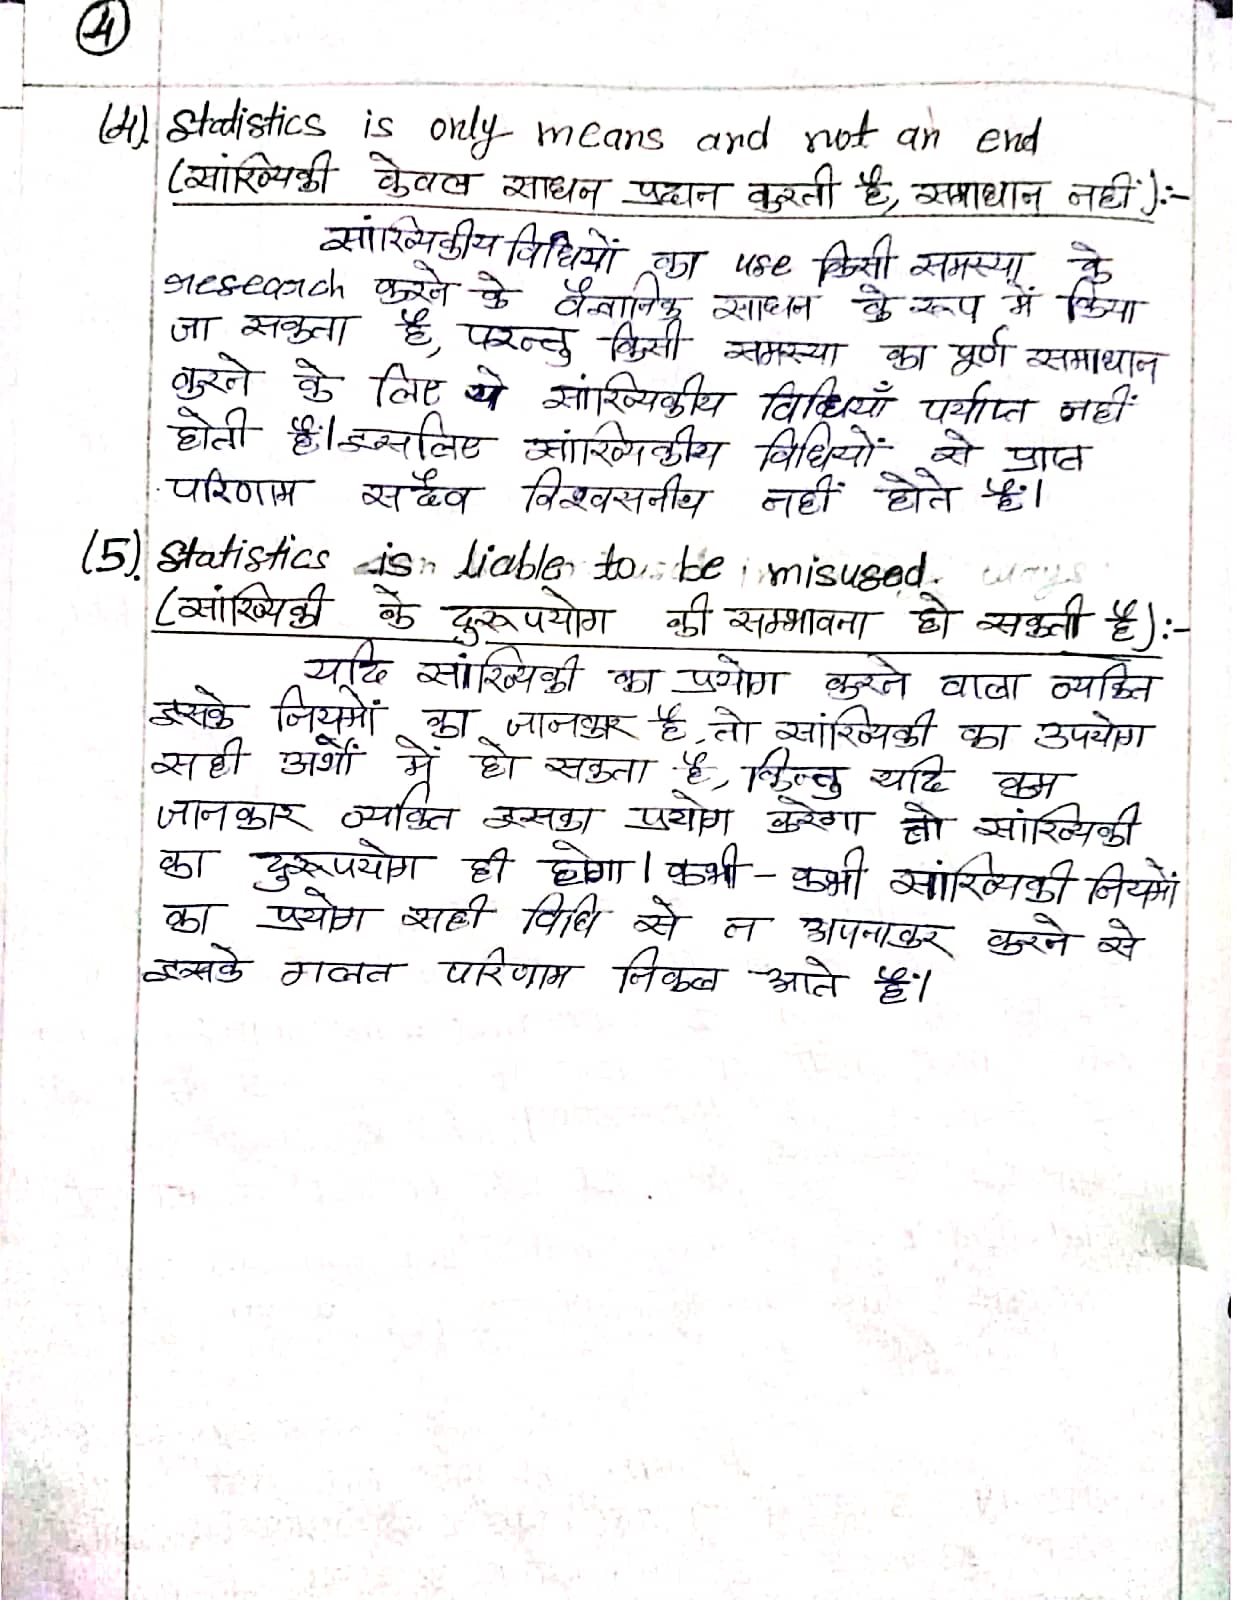 4
(4). Statistics is only means and not an end
(सांख्यिकी केवल साधन प्रदान करती है, समाधान नहीं):-
सांख्यिकीय विधियों का use किसी समस्या के
research करने के वैज्ञानिक साधन के रूप में किया
जा सकता है, परन्तु किसी समस्या का पूर्ण समाधान
करने के लिए ये सांख्यिकीय विधियाँ पर्याप्त नहीं
होती हैं। इसलिए सांख्यिकीय विधियों से प्राप्त
परिणाम सदैव विश्वसनीय नहीं होते हैं।
(5). Statistics is liable to be misused.
(सांख्यिकी के दुरूपयोग की सम्भावना हो सकती है):-
यदि सांख्यिकी का प्रयोग करने वाला व्यक्ति
इसके नियमों का जानकार है, तो सांख्यिकी का उपयोग
सही अर्थों में हो सकता है, किन्तु यदि कम
जानकार व्यक्ति इसका प्रयोग करेगा तो सांख्यिकी
का दुरूपयोग ही होगा। कभी - कभी सांख्यिकी नियमों
का प्रयोग सही विधि से न अपनाकर करने से
इसके गलत परिणाम निकल आते हैं।